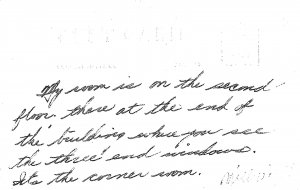 My room is on the second
floor. there at the end of
the building where you see
the three end windows.
It's the corner room.